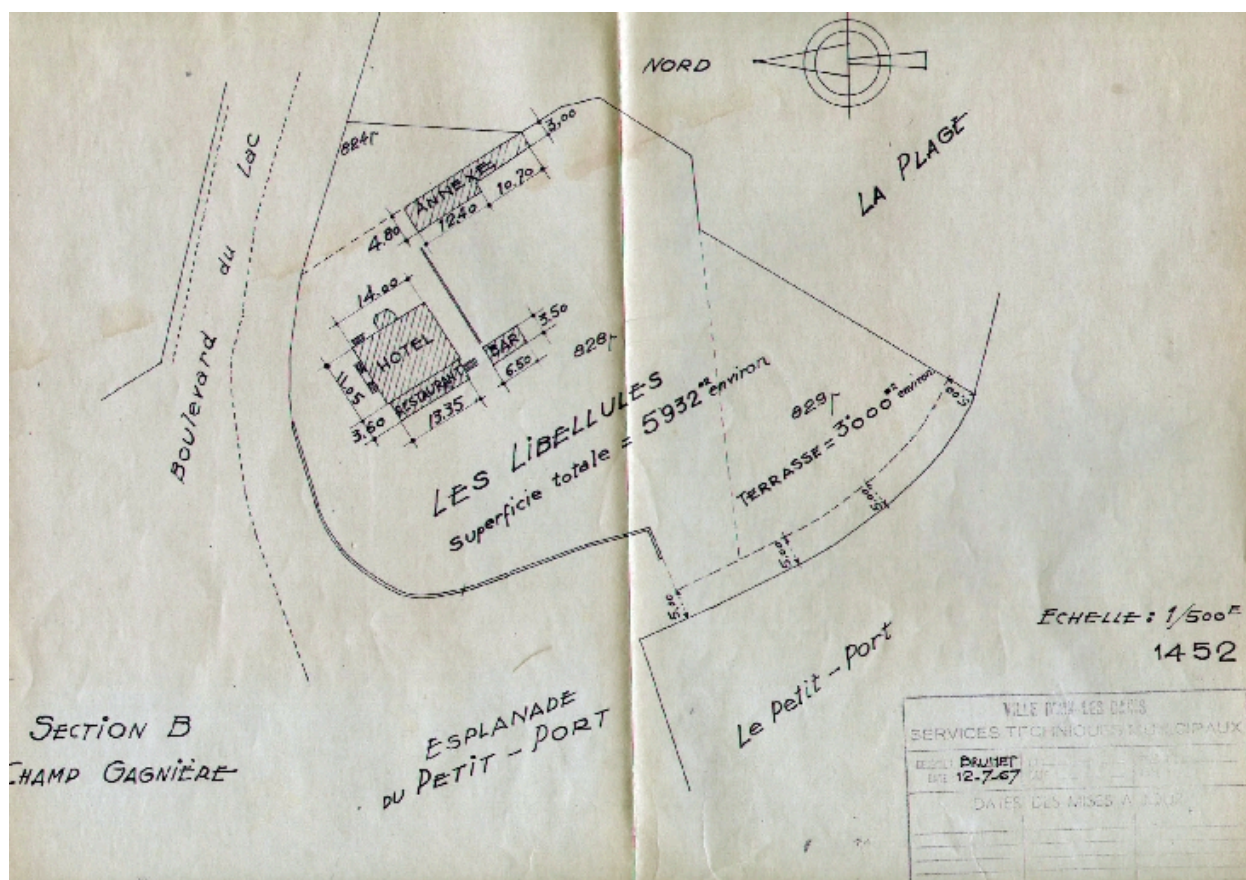 NORD
LA PLAGE
Boulevard du Lac
824p
3,00
ANNEXE
10.70
12.40
4.80
14.00
HOTEL
11.05
RESTAURANT
3.60
13.35
BAR
3.50
6.50
828p
LES LIBELLULES
Superficie totale = 5932 m2 environ
829p
TERRASSE = 3000 m2 environ
5.00
5.00
5.00
5.00
ECHELLE : 1/500E
1452
Le Petit-Port
ESPLANADE
DU PETIT-PORT
SECTION B
CHAMP GAGNIÈRE
VILLE D'AIX-LES-BAINS
SERVICES TECHNIQUES MUNICIPAUX
BRUNET
DATE 12-7-67
DATES DES MISES A JOUR